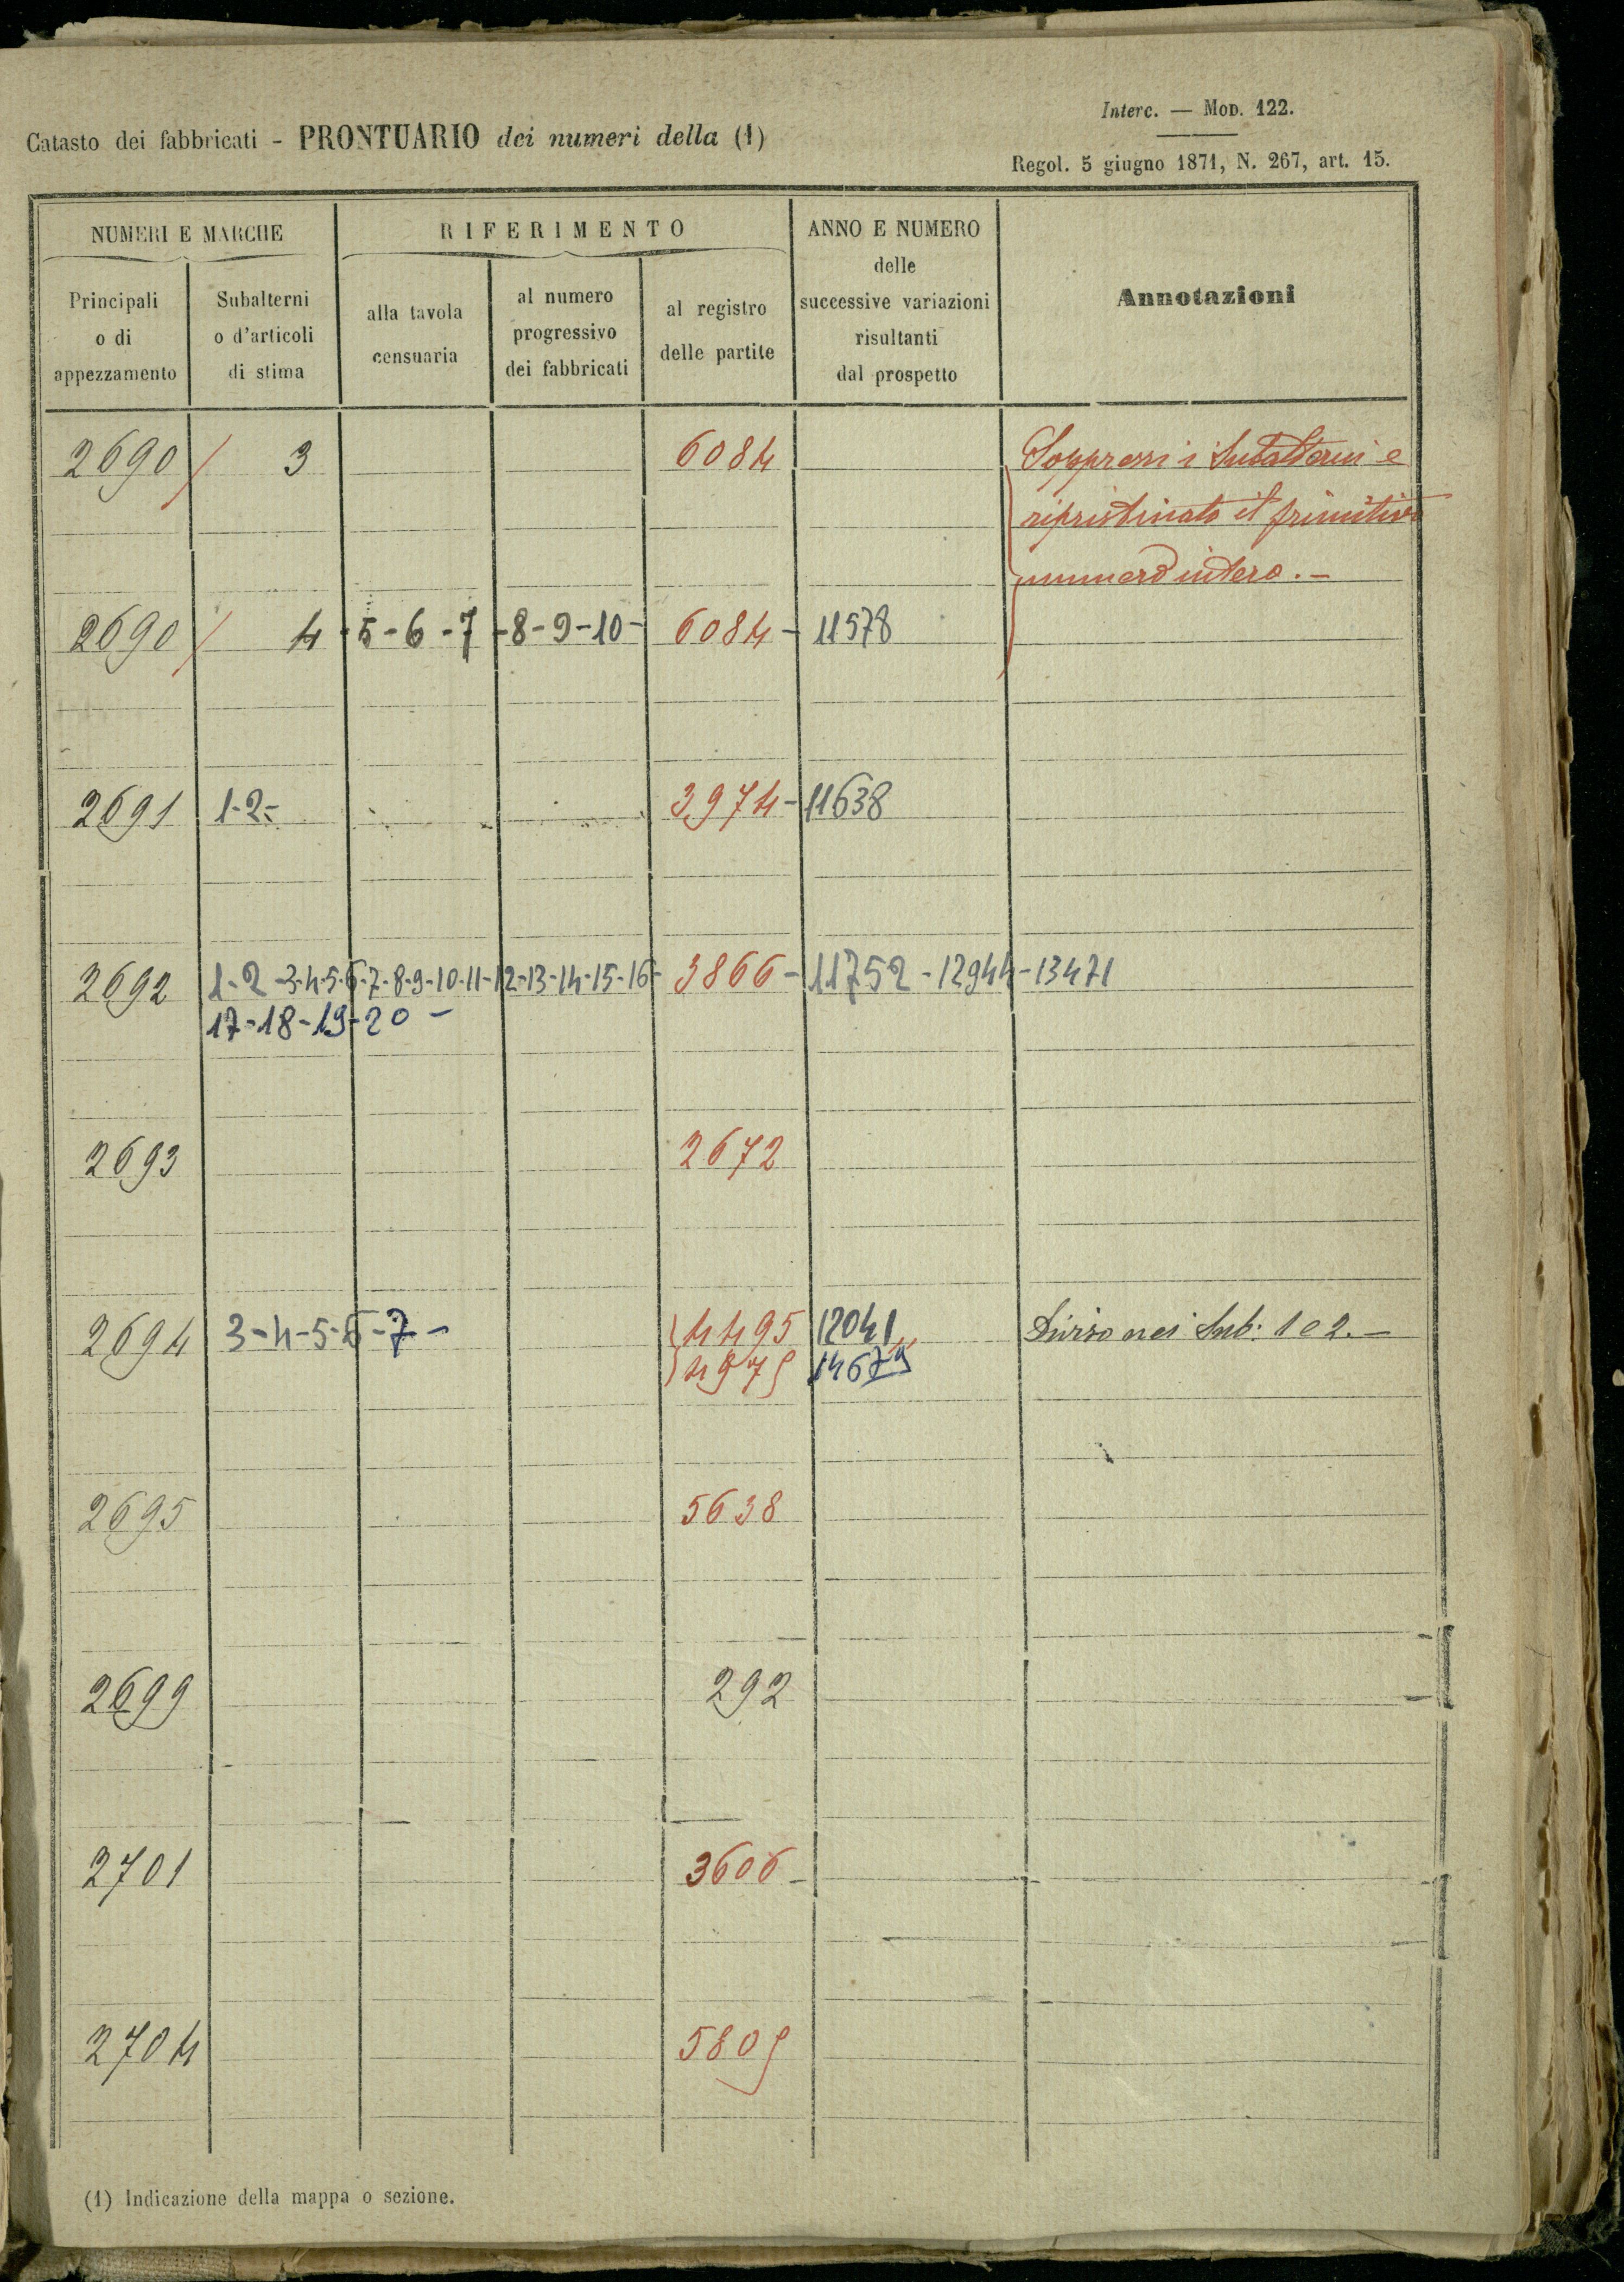 Interc. — Mod. 122.
Catasto dei fabbricati - PRONTUARIO dei numeri della (1)
Regol. 5 giugno 1871, N. 267, art. 15.
NUMERI E MARCHE
RIFERIMENTO
ANNO E NUMERO
delle
successive variazioni
risultanti
dal prospetto
Annotazioni
Principali
o di
appezzamento
Subalterni
o d'articoli
di stima
alla tavola
censuaria
al numero
progressivo
dei fabbricati
al registro
delle partite
2690 / 3 6084 Soppressi i Subalterni e
ripristinato il primitivo
numero intero. -
2690 / 4 - 5 - 6 - 7 - 8 - 9 - 10 - 6084 - 11578
2691 1-2- 3974 - 11638
2692 1-2-3-4-5-6-7-8-9-10-11-12-13-14-15-16- 3866 - 11752 - 12944 - 13471
17-18-19-20 -
2693 2672
2694 3-4-5-6-7- 4495 12041 Diviso nei Sub: 1 e 2. -
4975 14679
2695 5638
2699 292
2701 3606
2704 5805
(1) Indicazione della mappa o sezione.